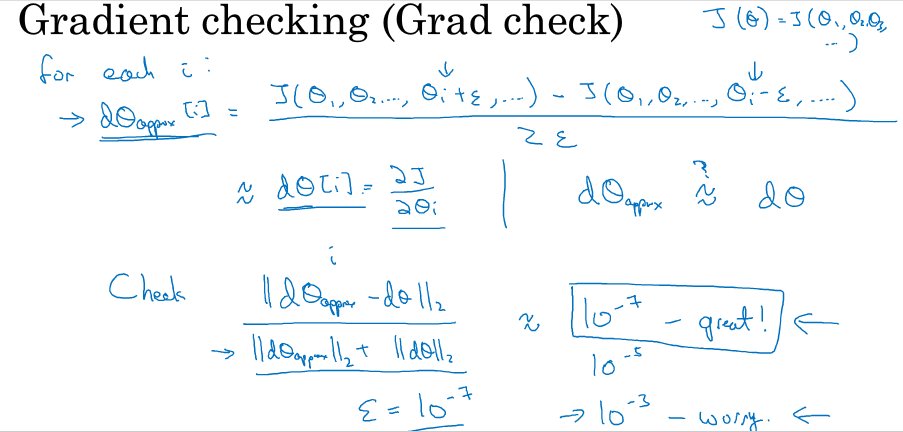 Gradient checking (Grad check)
J(θ) = J(θ₁, θ₂, θ₃, ...)
for each i:
→ dθapprox[i] = J(θ₁, θ₂, ..., θᵢ+ε, ...) - J(θ₁, θ₂, ..., θᵢ-ε, ...) / 2ε
≈ dθ[i] = ∂J/∂θᵢ | dθapprox ≈? dθ
i
Check ||dθapprox - dθ||₂ / ||dθapprox||₂ + ||dθ||₂ ≈ 10⁻⁷ - great! ←
10⁻⁵
ε = 10⁻⁷ → 10⁻³ - worry. ←